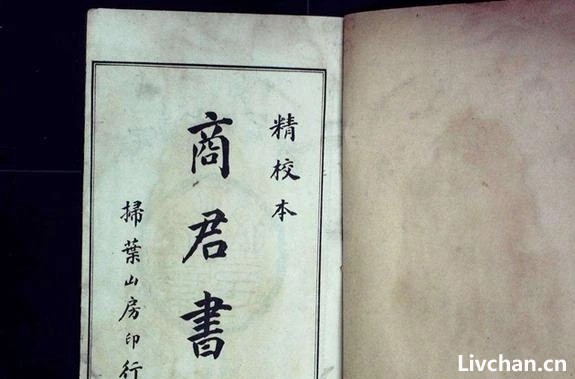 精校本
商君書
掃葉山房印行
Livchan.cn